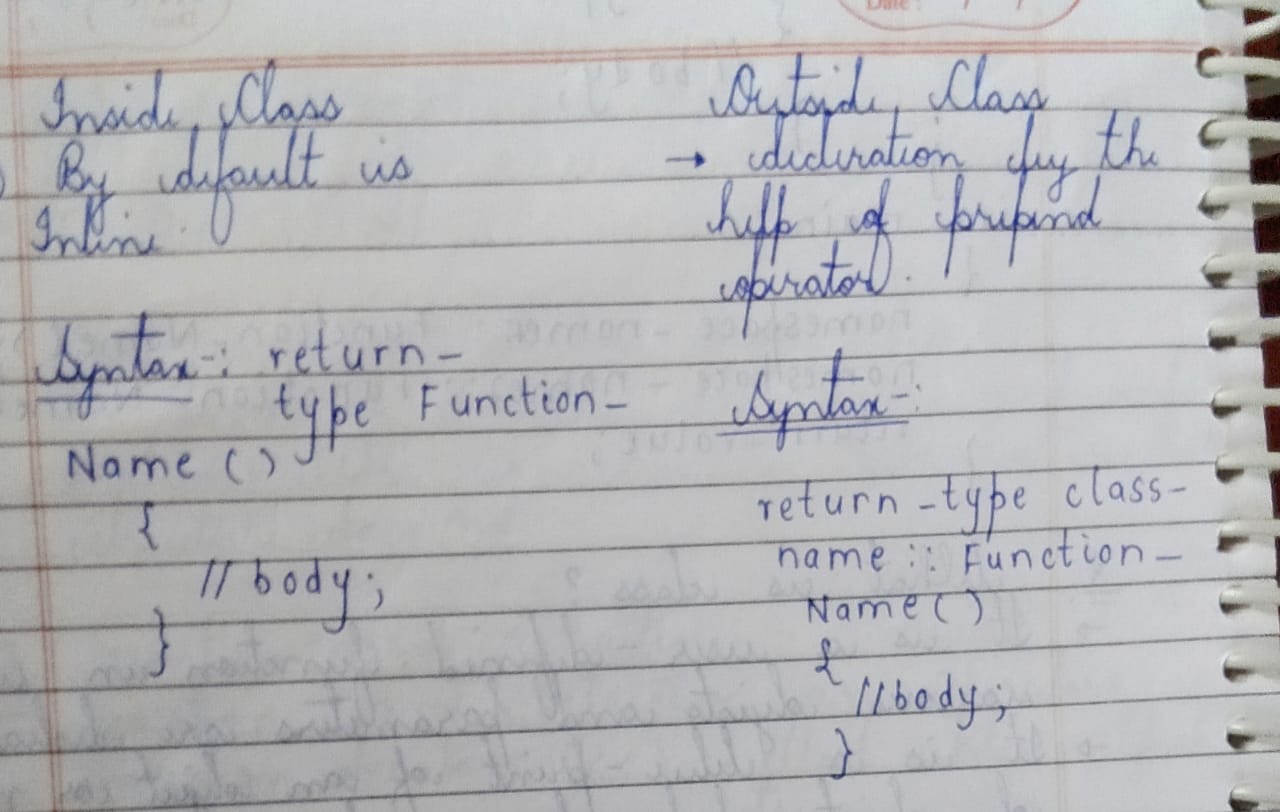 Date
Inside Class
By default is
Inline
Syntax-: return-
type Function-
Name ()
{
// body;
}
Outside Class
→ decleration by the
help of prepend
operator.
Syntax-:
return-type class-
name :: Function-
Name()
{
//body;
}